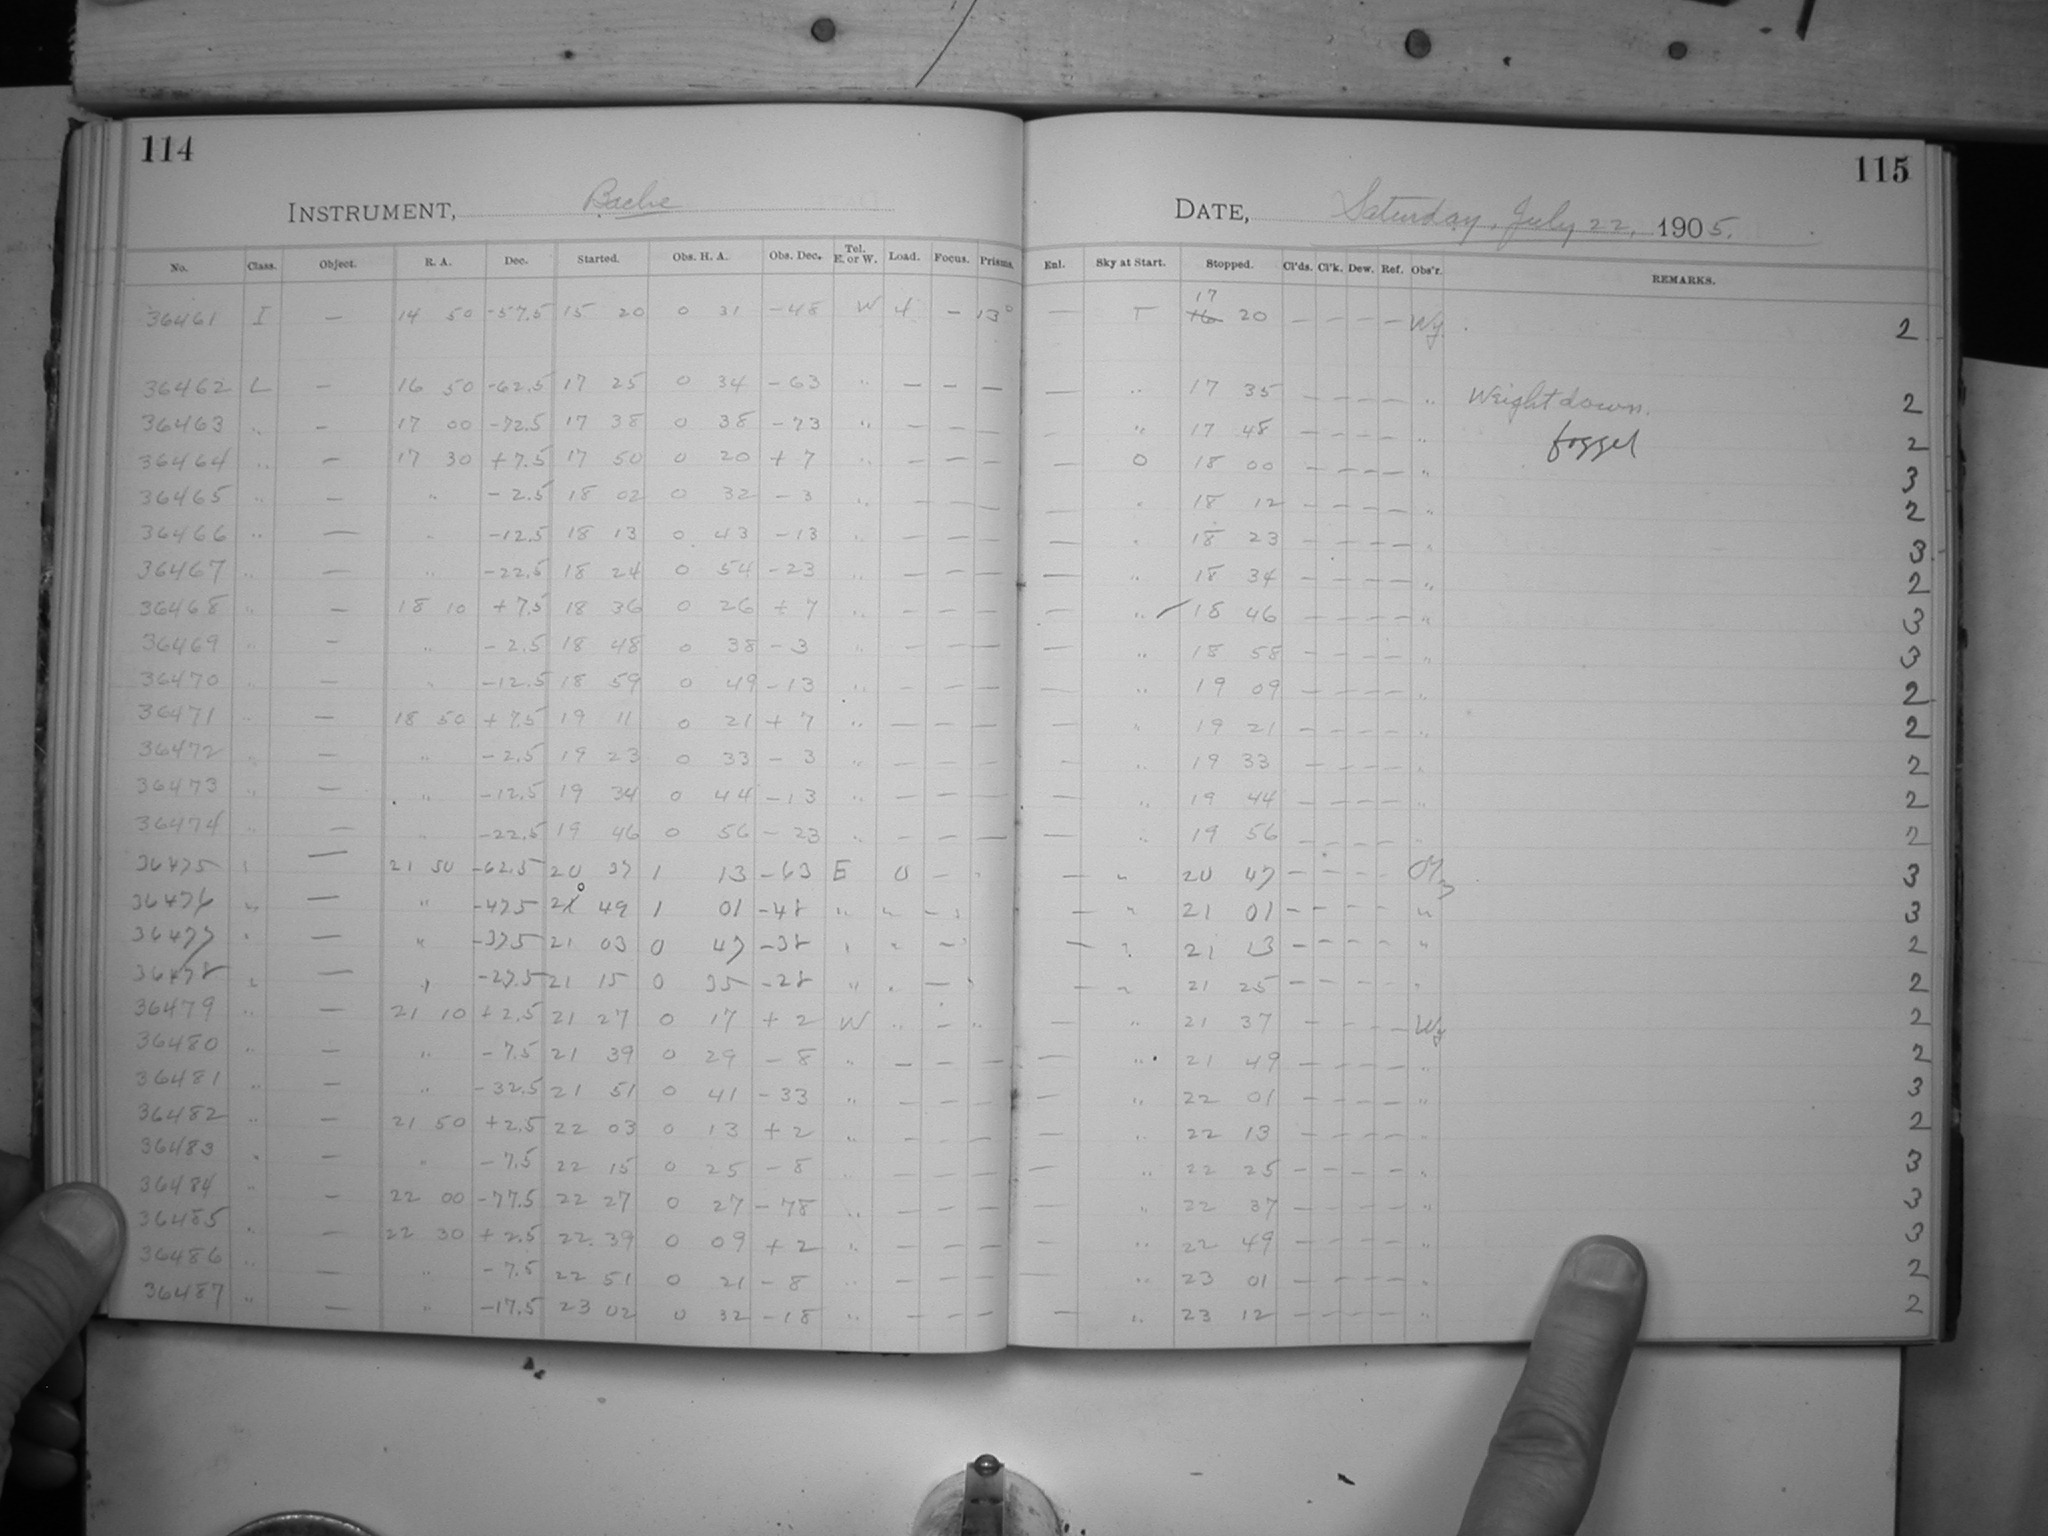 114
115
INSTRUMENT, Bache
DATE, Saturday, July 22, 1905.
No. Class. Object. R. A. Dec. Started. Obs. H. A. Obs. Dec. Tel. E. or W. Load. Focus. Prisms. Enl. Sky at Start. Stopped. Cl'ds. Cl'k. Dew. Ref. Obs'r. REMARKS.
36461 I — 14 50 -57.5 15 20 0 31 -48 W 4 — 13° — T 17 16 20 — — — — Wy. 2
36462 L — 16 50 -62.5 17 25 0 34 -63 " — — — — " 17 35 — — — — " Weight down. 2
36463 " — 17 00 -72.5 17 38 0 38 -73 " — — — — " 17 48 — — — — " fogged 2
36464 " — 17 30 +7.5 17 50 0 20 +7 " — — — — 0 18 00 — — — — " 3
36465 " — " -2.5 18 02 0 32 -3 " — — — — " 18 12 — — — — " 2
36466 " — " -12.5 18 13 0 43 -13 " — — — — " 18 23 — — — — " 3
36467 " — " -22.5 18 24 0 54 -23 " — — — — " 18 34 — — — — " 2
36468 " — 18 10 +7.5 18 36 0 26 +7 " — — — — " 18 46 — — — — " 3
36469 " — " -2.5 18 48 0 38 -3 " — — — — " 18 58 — — — — " 3
36470 " — " -12.5 18 59 0 49 -13 " — — — — " 19 09 — — — — " 2
36471 " — 18 50 +7.5 19 11 0 21 +7 " — — — — " 19 21 — — — — " 2
36472 " — " -2.5 19 23 0 33 -3 " — — — — " 19 33 — — — — " 2
36473 " — " -12.5 19 34 0 44 -13 " — — — — " 19 44 — — — — " 2
36474 " — " -22.5 19 46 0 56 -23 " — — — — " 19 56 — — — — " 2
36475 " — 21 50 -62.5 20 37 1 13 -63 E 0 — " — " 20 47 — — — — 3
36476 " — " -47.5 20 49 1 01 -48 " " — " — " 21 01 — — — — " 3
36477 " — " -37.5 21 03 0 47 -38 " " — " — " 21 13 — — — — " 2
36478 " — " -27.5 21 15 0 35 -28 " " — " — " 21 25 — — — — " 2
36479 " — 21 10 +2.5 21 27 0 17 +2 W " — " — " 21 37 — — — — Wy 2
36480 " — " -7.5 21 39 0 29 -8 " — — — — " 21 49 — — — — " 2
36481 " — " -32.5 21 51 0 41 -33 " — — — — " 22 01 — — — — " 3
36482 " — 21 50 +2.5 22 03 0 13 +2 " — — — — " 22 13 — — — — " 2
36483 " — " -7.5 22 15 0 25 -8 " — — — — " 22 25 — — — — " 3
36484 " — 22 00 -77.5 22 27 0 27 -78 " — — — — " 22 37 — — — — " 3
36485 " — 22 30 +2.5 22 39 0 09 +2 " — — — — " 22 49 — — — — " 3
36486 " — " -7.5 22 51 0 21 -8 " — — — — " 23 01 — — — — " 2
36487 " — " -17.5 23 02 0 32 -18 " — — — — " 23 12 — — — — " 2